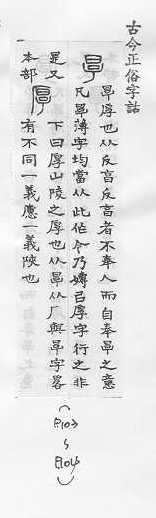 古今正俗字詁
㫗
㫗厚也从反亯反亯者不奉人而自奉㫗之意
凡㫗薄字均當从此作今乃嫥㠯厚字行之非
是又
本部
厚
下曰厚山陵之厚也从㫗从厂與㫗字畧
有不同一義應一義陝也
(P.103
~
P.104)